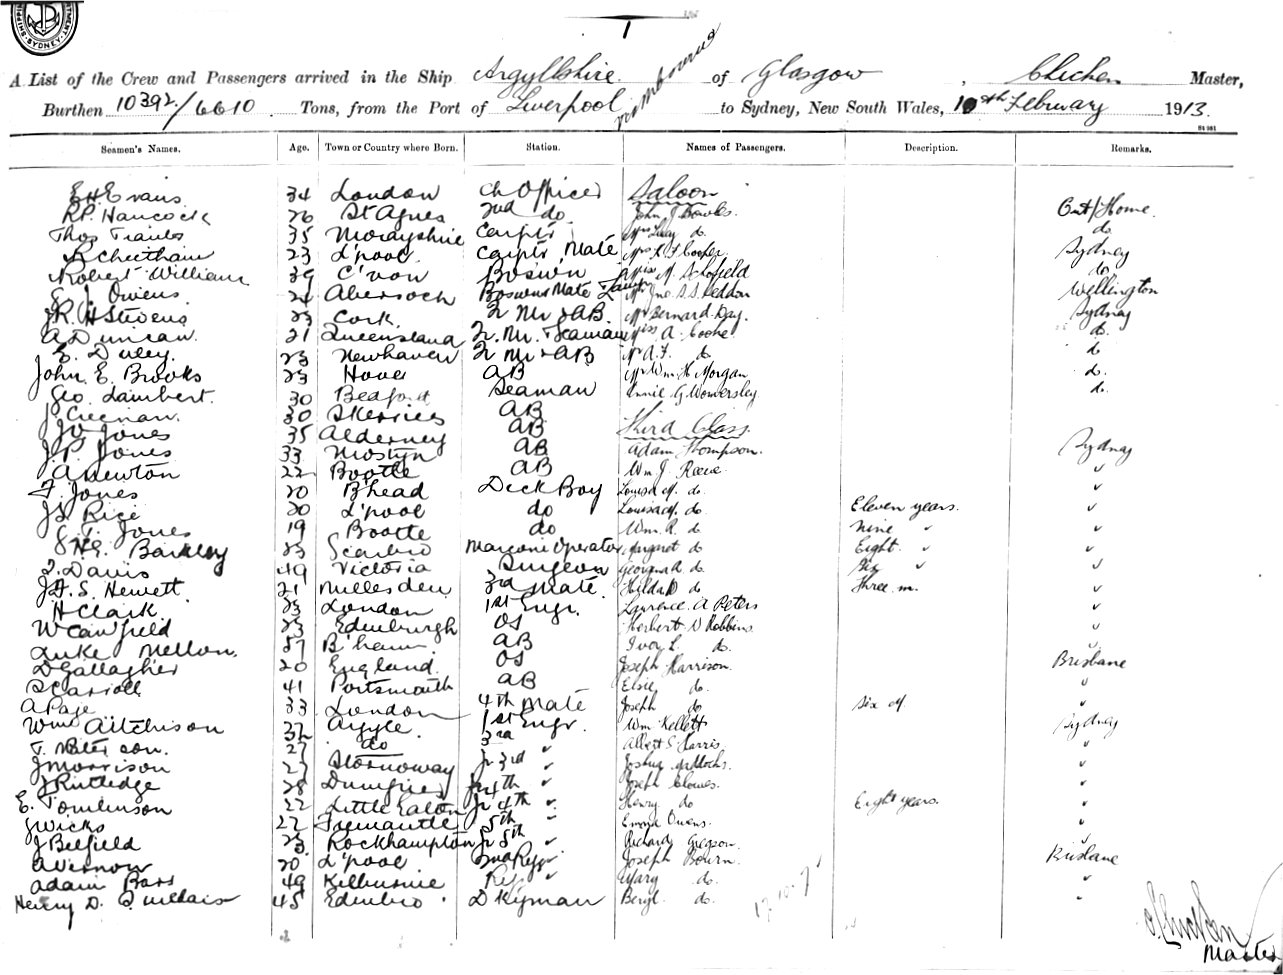 A List of the Crew and Passengers arrived in the Ship Argyllshire of Glasgow, Chichen Master,
Burthen 10392/6610 Tons, from the Port of Liverpool via Melbourne to Sydney, New South Wales, 10th February 1913.
Seamen's Names. Age. Town or Country where Born. Station. Names of Passengers. Description. Remarks.
E H Evans 34 London Ch Officer Saloon
R.P. Hancock 26 St Agnes 2nd do. John J Bowles. Out/Home.
Thos 35 Morayshire Carptr Mrs Lucy do. do.
R Cheetham 23 L'pool Carptr Mate Mrs Cooper Sydney
Robert William 39 C'von Bosw'n Miss M. Schofield do
J Owens 24 Abersoch Boswns Mate Lamps S. Seddon Wellington
J R H Stevens 23 Cork. Qr Mr & AB. Mr Bernard Day. Sydney
A Duncan. 21 Queensland Qr. Mr. Seaman Miss A. Cooke do.
E. Duley. 23 Newhaven Qr Mr & AB Mr A. F. do do
John E. Brooks 23 Hove AB Mr Wm H Morgan do.
Geo. Lambert. 30 Bedford Seaman Annie G Womersley do.
J. 30 Skerries AB
J O Jones 35 Alderney AB Third Class
J. P. Jones 33 Mostyn AB Adam Thompson. Sydney
A Newton 22 Bootle AB Wm J. Reeve "
T. Jones 20 B'head Deck Boy Louisa M. do "
J S Rice 20 L'pool do Louisa M. do Eleven years. "
G. T. Jones 19 Bootle do Wm. R. do Nine " "
H.E. Barkley 23 Scarbro Marconi Operator Margaret do Eight. " "
T. Davis 49 Victoria Surgeon Georgina R. do Six " "
J H. S. Hewett. 21 Willesden 3rd Mate. Hilda D do Three. m. "
H Clark. 23 London 1st Engr. Laurence. A Peters "
W Cawfield 23 Edinburgh OS Herbert D Robbins "
Luke Mellon. 37 B'ham AB Ivory L. do. "
D Gallagher 20 England. OS Joseph Harrison. Brisbane
S Carroll 41 Portsmouth AB Elsie do. "
A Page 33 London 4th Mate Joseph do Six M. "
Wm Aitchison 37 Argyle. 1st Engr. Wm Kellett Sydney
T. Paterson. 27 do 3rd " Albert S Harris. "
J Morrison 27 Stornoway Jr 3rd " Joshua "
J Rutledge 28 Dumfries Jr 4th " Joseph Clowes. "
E. Tomlinson 22 Little Eaton Jr 4th " Henry do Eight years. "
G Wicks 22 Fremantle 5th " Owens. "
J Belfield 23 Rockhampton Jr 5th " Richard Gregson. "
A Vernon 20 L'pool 2nd Refgr " Joseph Bourn. Brisbane
Adam Barr 49 Kilburnie Ref " Mary do. "
Henry D. 45 Edinbro' Dkyman Beryl. do. "
Master